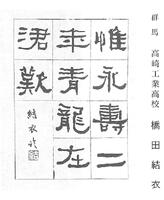 群馬 高崎工業高校 橋田結衣
惟永壽二
年青龍在
涒歎
結衣臨